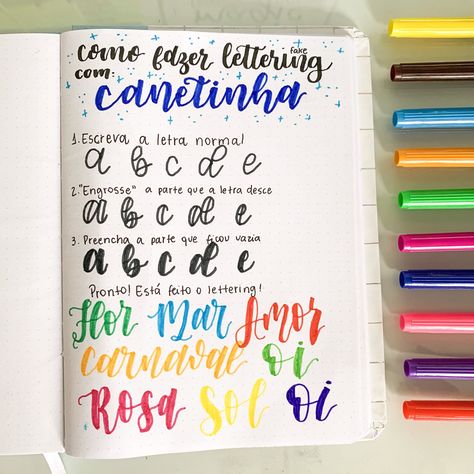 como fazer lettering fake
com:
canetinha
1. Escreva a letra normal
a b c d e
2. "Engrosse" a parte que a letra desce
a b c d e
3. Preencha a parte que ficou vazia
a b c d e
Pronto! Está feito o lettering!
Flor Mar Amor
carnaval oi
Rosa Sol oi